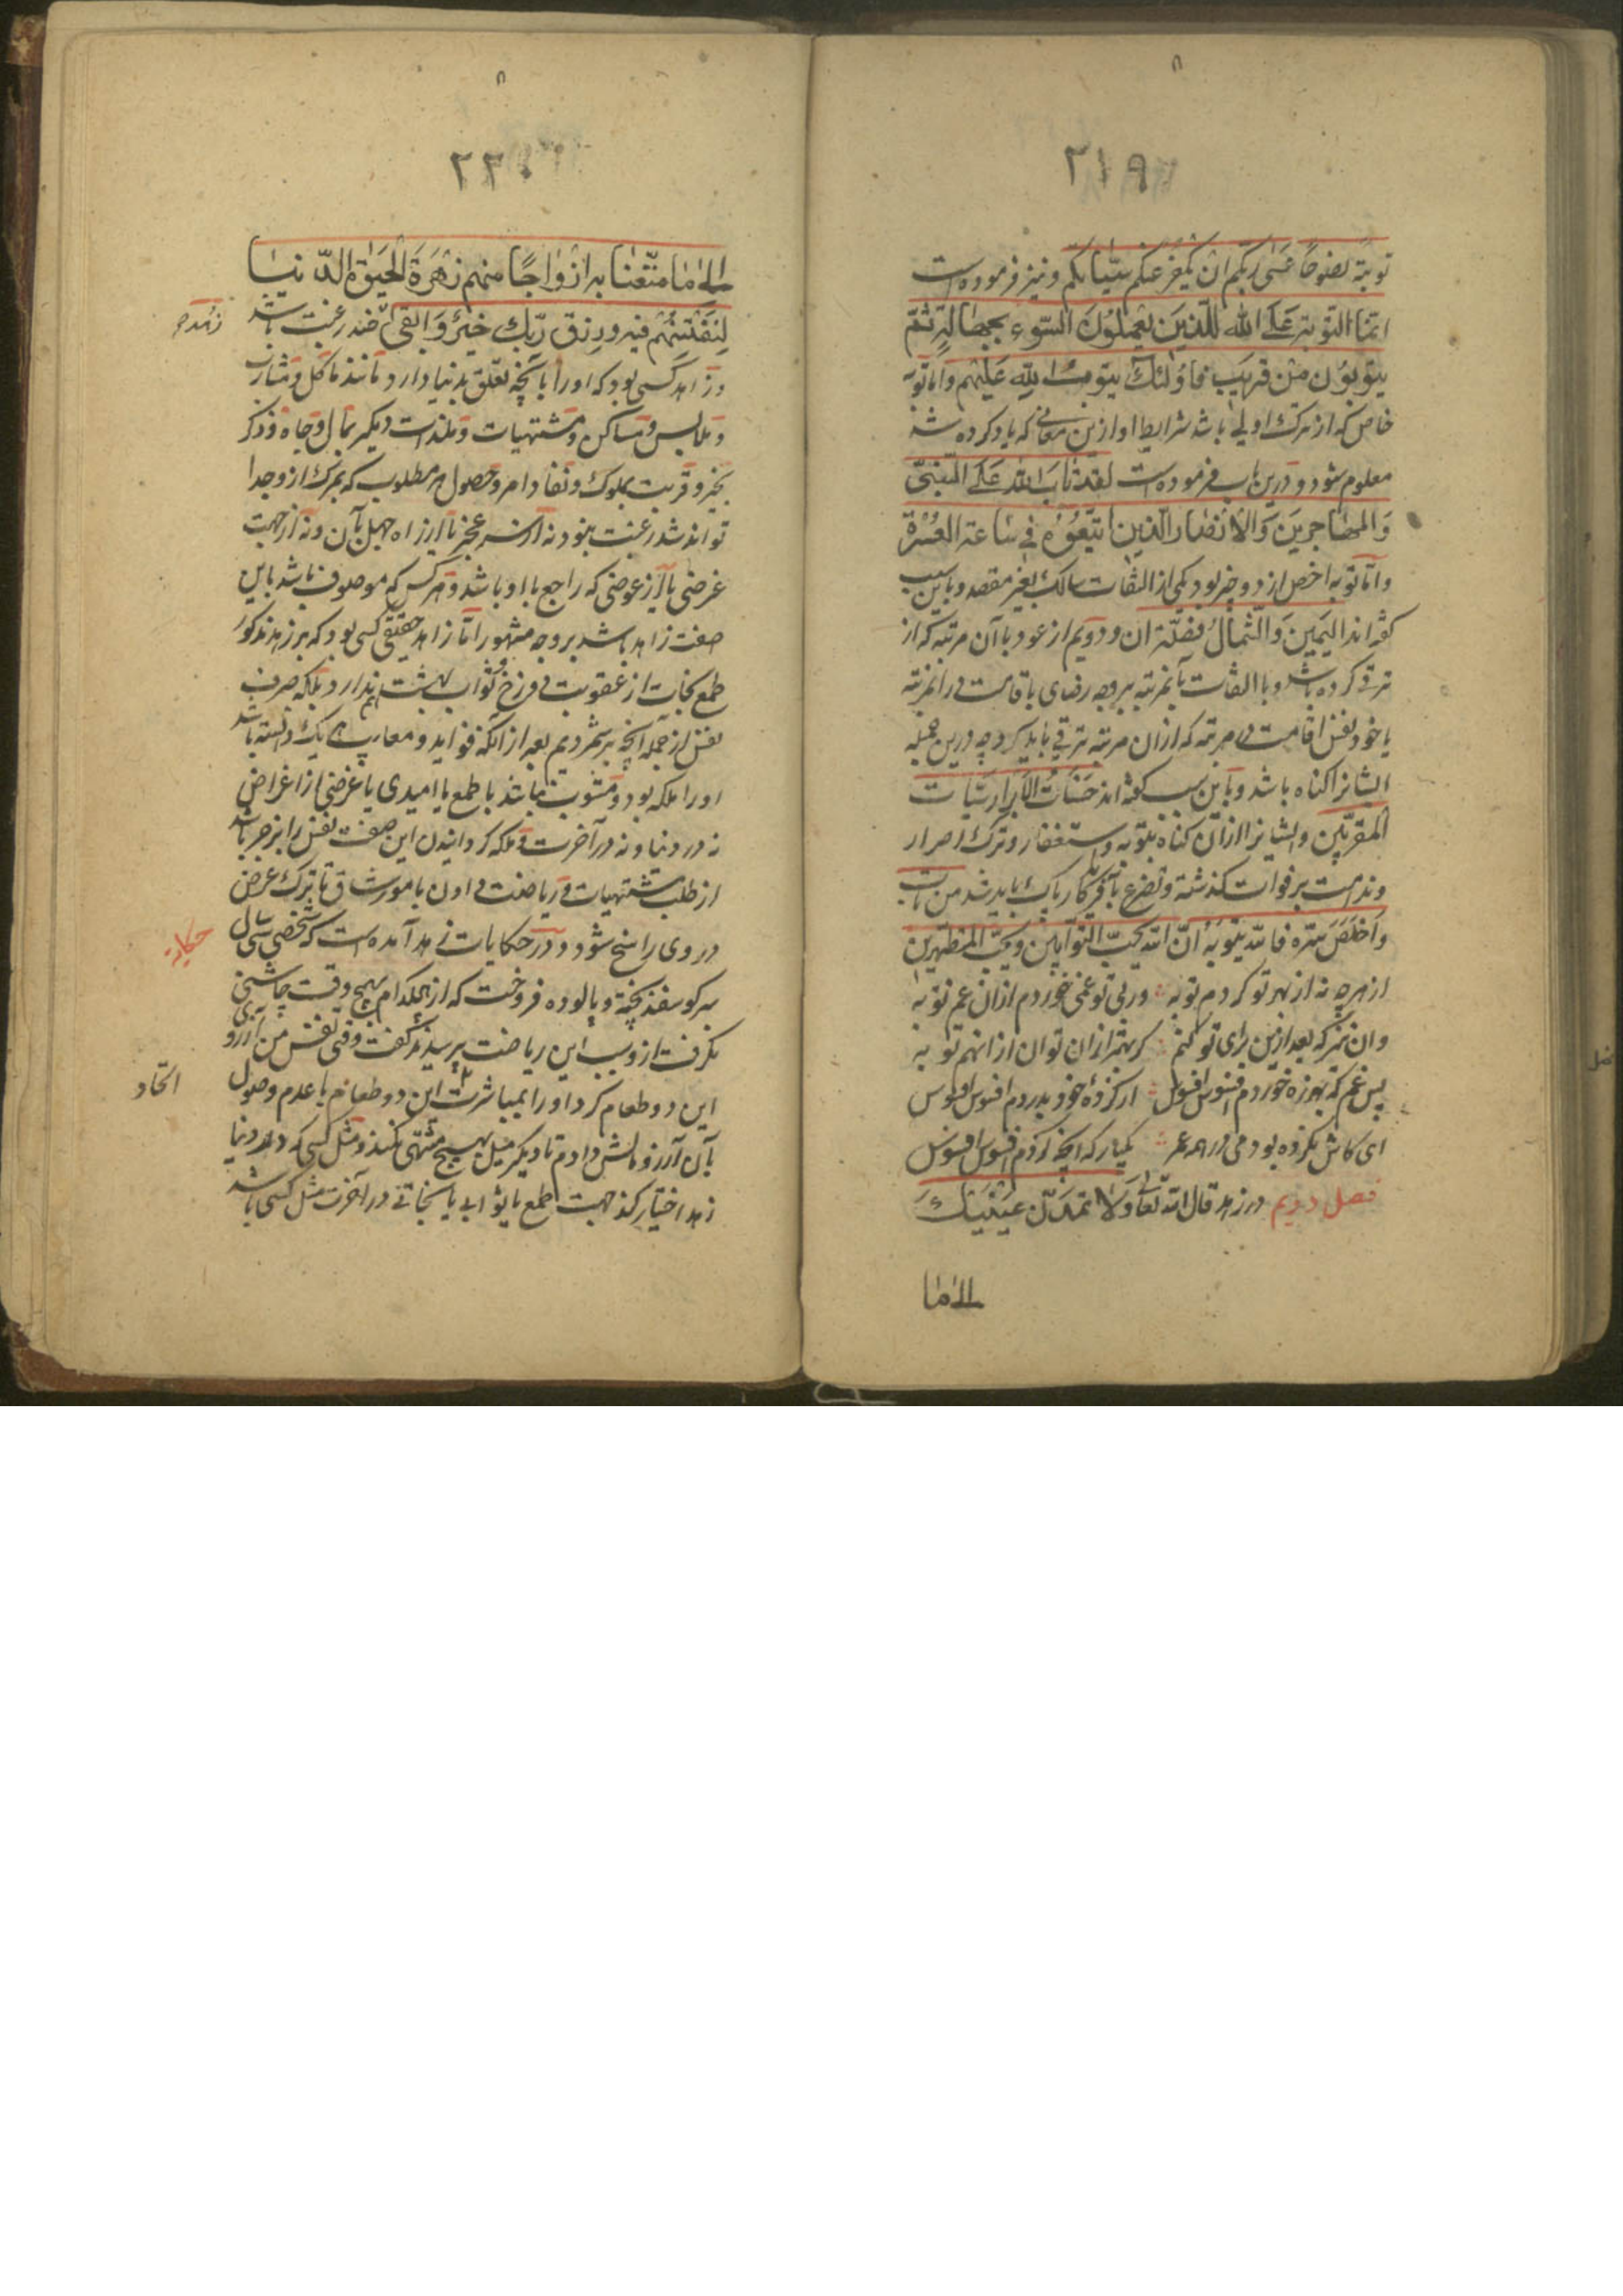 ۲۱۹
توبة نصوحا عسی ربکم ان یکفر عنکم سیّئاتکم و نیز فرموده است
انما التوبة علی الله للذین یعملون السّوء بجهالة ثمّ
یتوبون من قریب فاولئک یتوب الله علیهم و اما توبه
خاص که از ترک اولی باشد شرایط او ازین معانی که یاد کرده شد
معلوم شود و درین باب فرموده است لقد تاب الله علی النّبیّ
و المهاجرین و الانصار الّذین اتبعوه فی ساعة العسرة
و امّا توبه اخص از دو چیز بود یکی از التفات سالک بغیر مقصد و باین سبب
گفته اند الیمین و الشّمال مضلّتان و دویم از عود باآن مرتبه که از
ترقی کرده باشد و با التفات بآنمرتبه بر وجه رضای باقامت در آنمرتبه
یا خود نفس اقامت در مرتبه که ازان مرتبه ترقی باید کرد چه درین جمله
ایشانرا گناه باشد و باین سبب گفته اند حسنات الابرار سیّئات
المقربّین و ایشانرا ازان گناه بتوبه و استغفار و ترک اصرار
و ندامت بر فوات گذشته و تضرع بآفریدگار پاک باید شد من تاب
و اخلص سرّه فالله یتوبه انّ الله یحبّ التوابین و یحبّ المتطهّرین
از هرچه نه از بهر تو کردم توبه ؞ ور بی تو غمی خوردم ازان غم توبه
وان نیز که بعد ازین برای تو کنم ؞ گر بهتر ازان توان ازانهم توبه
پس غم که بهرزه خوردم افسوس افسوس ؞ از کرده خود بدردم افسوس افسوس
ای کاش نکرده بودمی در همه عمر ؞ یکبار که آنچه کردم افسوس افسوس
فصل دویم در زهد قال الله تعالی و لا تمدّنّ عینیک
الی ما
۲۲۰
الی ما متّعنا به ازواجًا منهم زهرة الحیوة الدّنیا
لنفتنهم فیه و رزق ربّک خیر و ابقی زهد ضد رغبت باشد
و زاهد کسی بود که او را بآنچه تعلق بدنیا دارد مانند مآکل و مشارب
و ملابس و مساکن و مشتهیات و مستلذات دیگر بمال و جاه و ذکر
بخیر و قربت بملوک و نفاذ امر و حصول هر مطلوب که بمرگ از و جدا
تواند شد رغبت بنود نه از سر عجز یا از راه جهل بآن و نه از جهت
غرضی یا از عوضی که راجع باو باشد و هر کس که موصوف باشد باین
صفت زاهد باشد بر وجه مشهور امّا زاهد حقیقی کسی بود که بر زهد مذکور
طمع نجات از عقوبت دوزخ و ثواب بهشت هم ندارد بلکه صرف
نفس از جمله آنچه بر شمردیم بعد از آنکه فواید و معایب هر یک دانسته باشد
او را ملکه بود و مشوب نباشد با طمع یا امیدی یا غرضی از اغراض
نه در دنیا و نه در آخرت و ملکه گردانیدن این صفت نفس را بزجر باشد
از طلب مشتهیات و ریاضت دادن بامور شاق تا ترک غرض
در وی راسخ شود و در حکایات زهد آمده است که شخصی سی سال
سر گوسفند پخته و پالوده فروخت که از هیچکدام بهیچ وقت چاشنی
نگرفت ازو سبب این ریاضت پرسیدند گفت وقتی نفس من آرزوی
این دو طعام کرد او را بمباشرت اتخاذ این دو طعام با عدم وصول
بآن آرزو مالش دادم تا دیگر میل بهیچ مشتهی نکند و مثل کسی که در دنیا
زهد اختیار کند جهت طمع یا ثوابی یا نجاتی در آخرت مثل کسی باشد
حکایة
اتخاذ